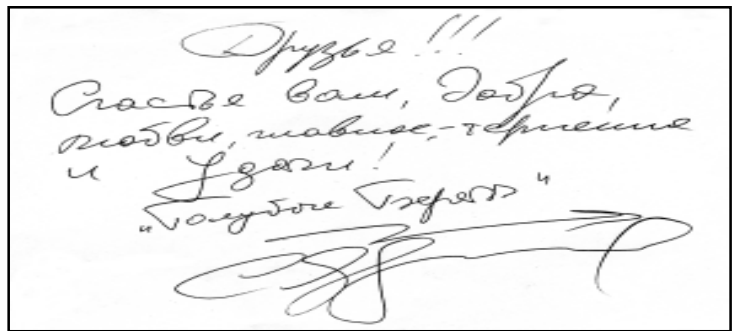 Друзья!!!
Счастья вам, добра,
любви, главное,-терпения
и Удачи!
"Голубые Береты"